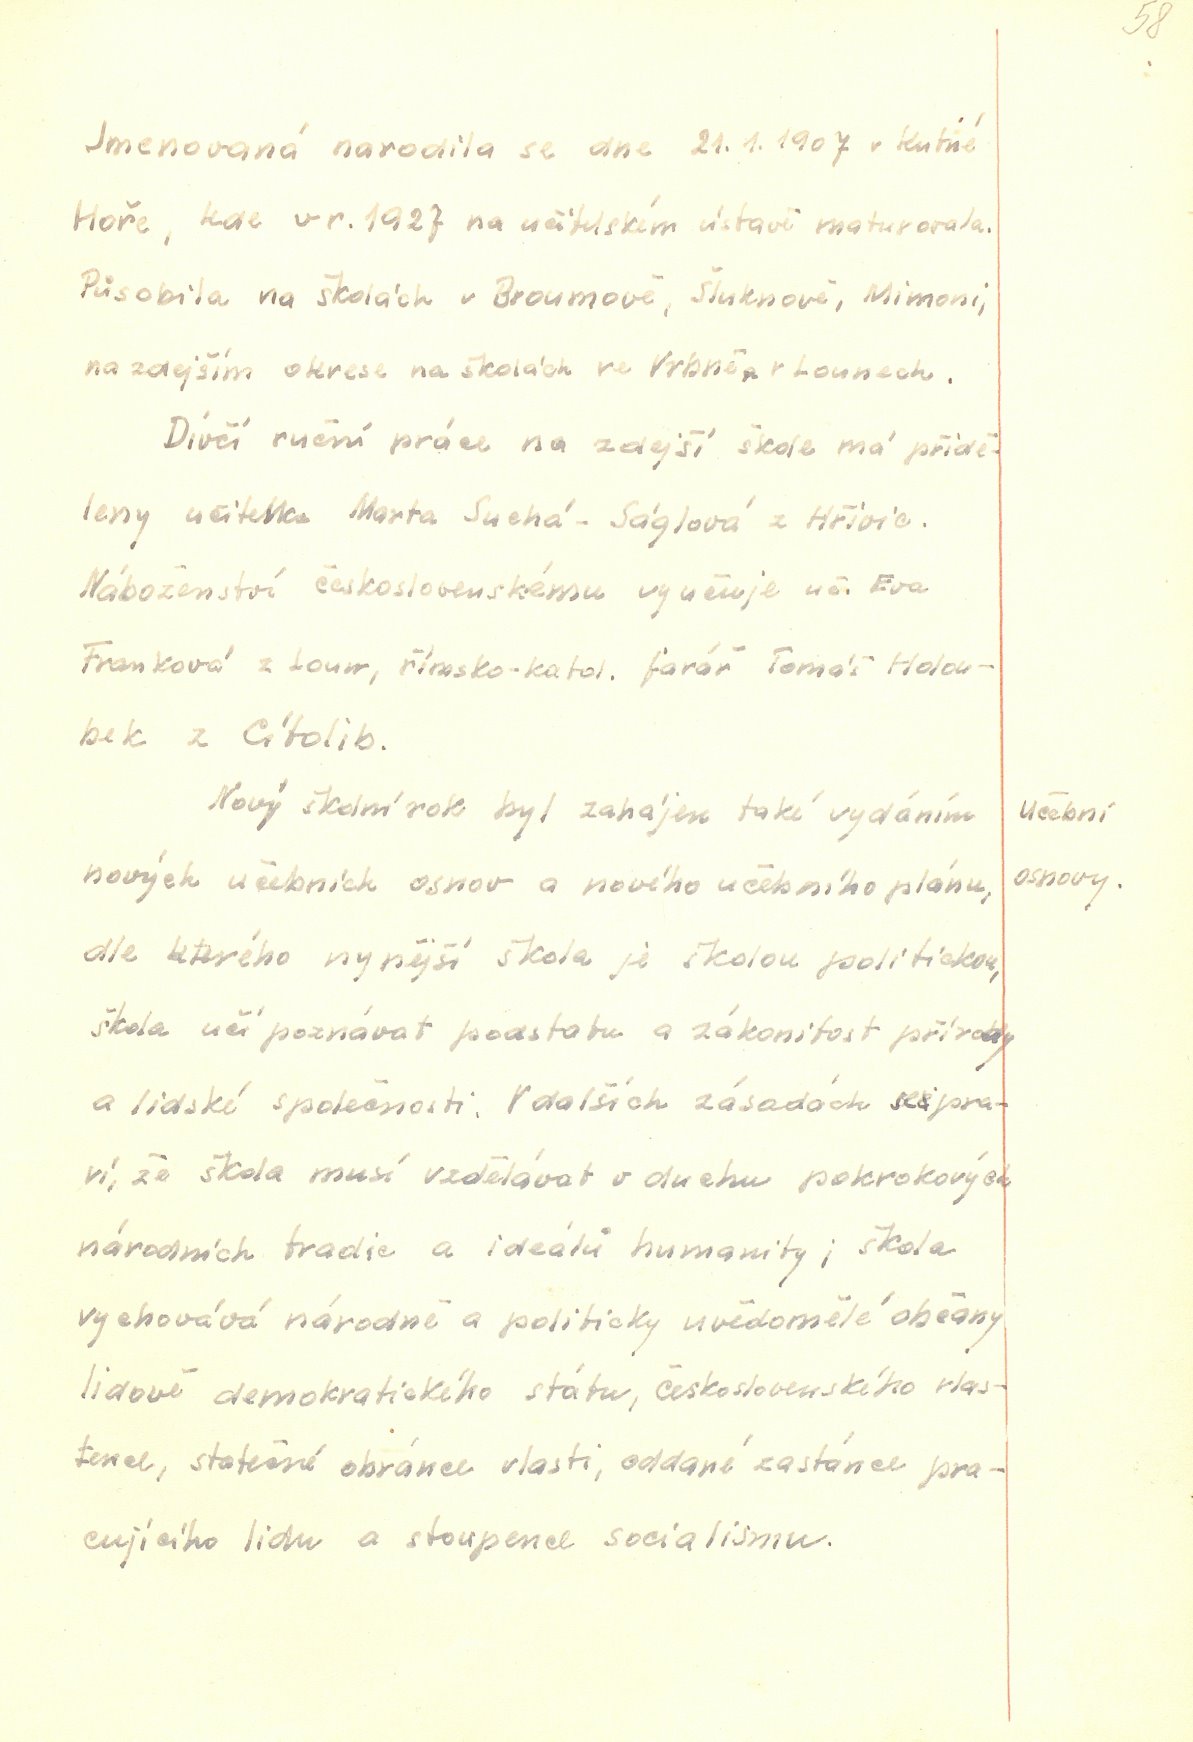 58
Jmenovaná narodila se dne 21. 1. 1907 v Kutné
Hoře, kde v r. 1927 na učitelském ústavě maturovala.
Působila na školách v Broumově, Šluknově, Mimoni,
na zdejším okrese na školách ve Vrbně a v Lounech.
Dívčí ruční práce na zdejší škole má přidě-
leny učitelka Marta Suchá - Ságlová z Hřivic.
Náboženství československému vyučuje uč. Eva
Franková z Loun, římsko-katol. farář Tomáš Holou-
bek z Cítolib.
Nový školní rok byl zahájen také vydáním
Učební
nových učebních osnov a nového učebního plánu,
osnovy.
dle kterého nynější škola je školou politickou,
škola učí poznávat podstatu a zákonitost přírody
a lidské společnosti. V dalších zásadách se pra-
ví, že škola musí vzdělávat v duchu pokrokových
národních tradic a ideálů humanity; škola
vychovává národně a politicky uvědomělé občany
lidově demokratického státu, československého vlas-
tence, statečné obránce vlasti, oddané zastánce pra-
cujícího lidu a stoupence socialismu.